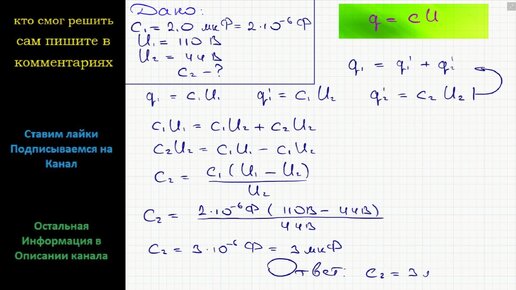 кто смог решить
сам пишите в
комментариях
Ставим лайки
Подписываемся на
Канал
Остальная
Информация в
Описании канала
Дано:
C₁ = 2.0 мкФ = 2·10⁻⁶Ф
U₁ = 110 В
U₂ = 44 В
C₂ - ?
q = cU
q₁ = q₁' + q₂'
q₁ = c₁U₁ q₁' = c₁U₂ q₂' = c₂U₂
c₁U₁ = c₁U₂ + c₂U₂
c₂U₂ = c₁U₁ - c₁U₂
c₂ = c₁(U₁ - U₂) / U₂
C₂ = 2·10⁻⁶Ф (110В - 44В) / 44В
C₂ = 3·10⁻⁶Ф = 3 мкФ
Ответ: C₂ = 3